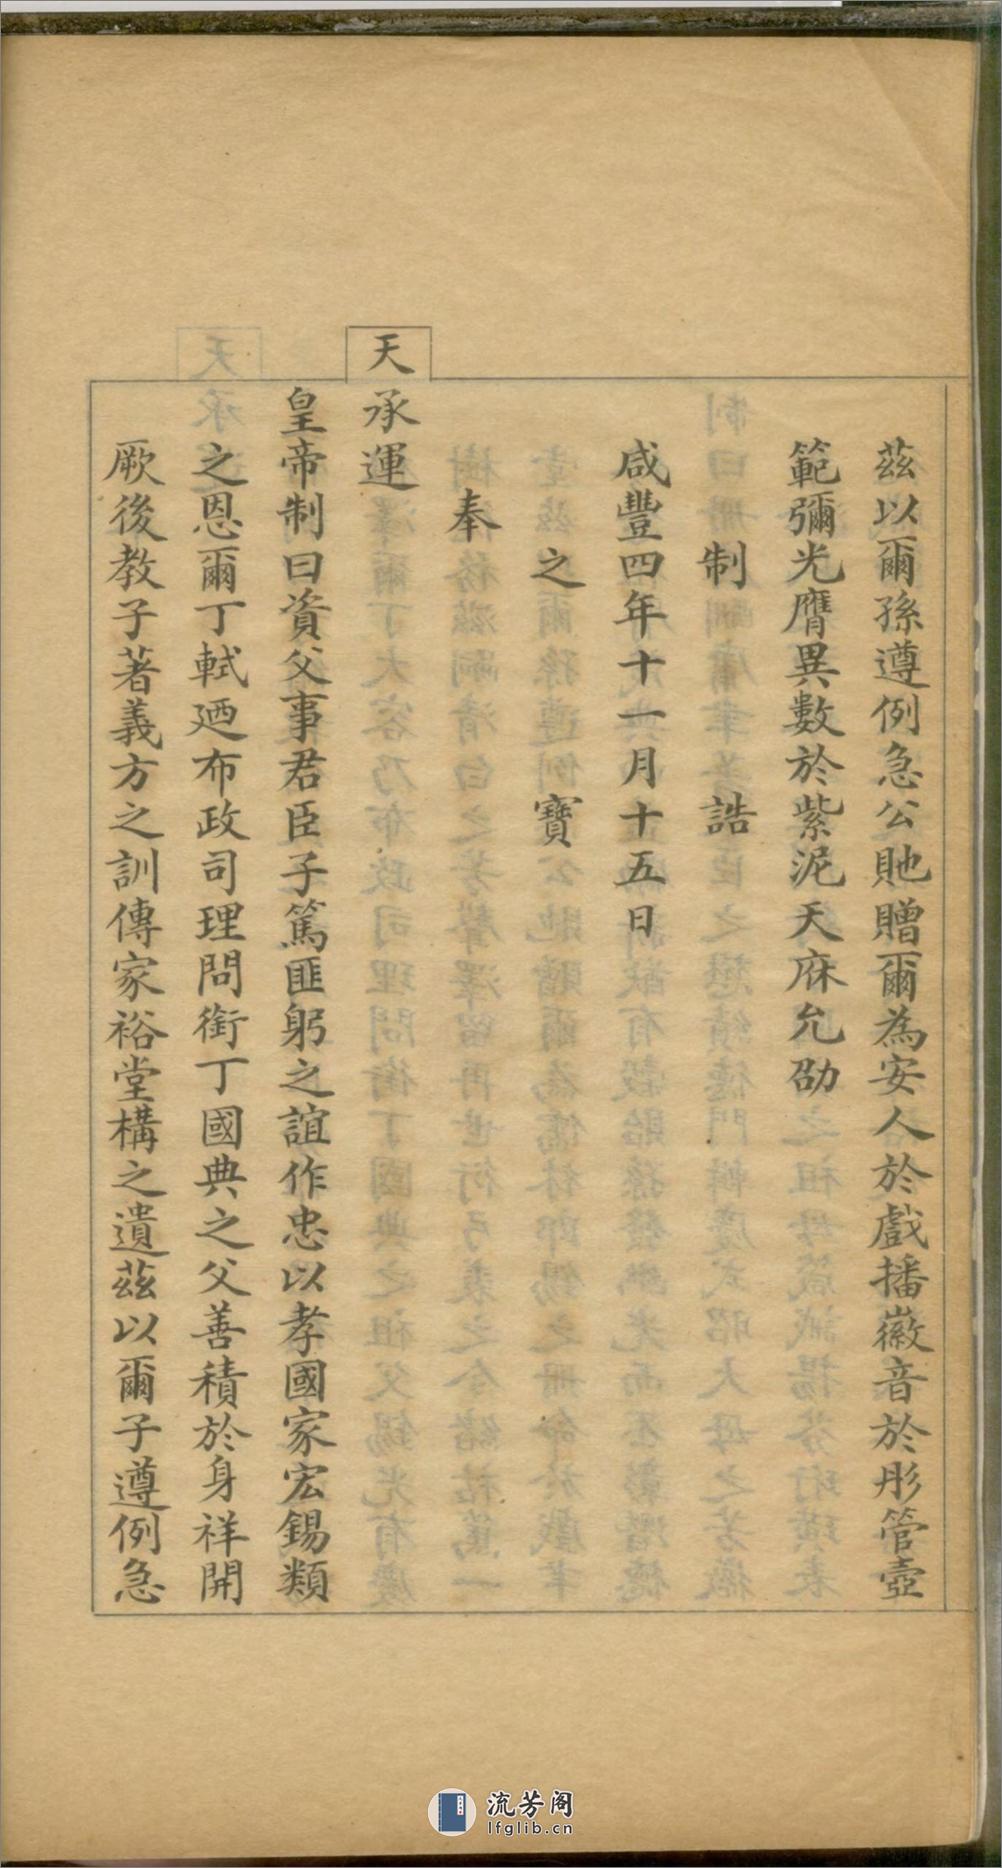 茲以爾孫遵例急公貤贈爾為安人於戲播徽音於彤管壺
範彌光膺異數於紫泥天庥允劭
制誥
咸豐四年十一月十五日
之寶
奉
天承運
皇帝制曰資父事君臣子篤匪躬之誼作忠以孝國家宏錫類
之恩爾丁軾廼布政司理問銜丁國典之父善積於身祥開
厥後教子著義方之訓傳家裕堂構之遺茲以爾子遵例急
流芳阁
lfglib.cn